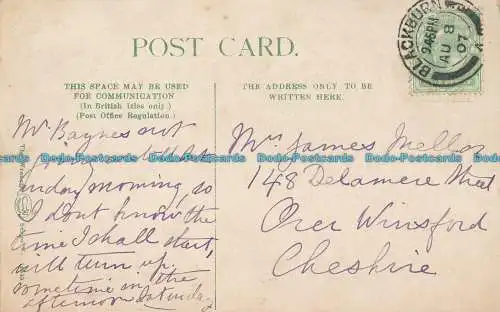 POST CARD.
THIS SPACE MAY BE USED
FOR COMMUNICATION
(In British Isles only)
(Post Office Regulation.)
THE ADDRESS ONLY TO BE
WRITTEN HERE.
BLACKBURN
9.45PM
AU 8
07
Mr Baynes not
going till
unday morning, so
I dont know the
time I shall start,
will turn up
sometime in the
afternoon Saturday
Mrs James Mellor
148 Delamere Street
Over Winsford
Cheshire
Postcards Data Postcards Data Postcards Data Postcards Data Postcards Data